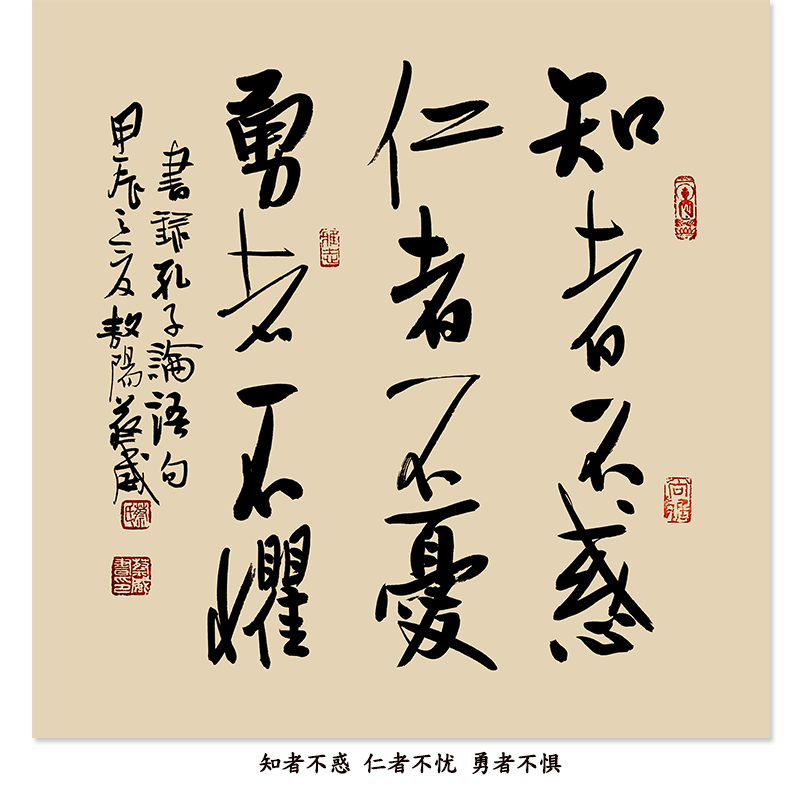 知者不惑
仁者不憂
勇者不懼
書錄孔子論語句
甲辰之夏敖陽蔡威
知者不惑 仁者不忧 勇者不惧